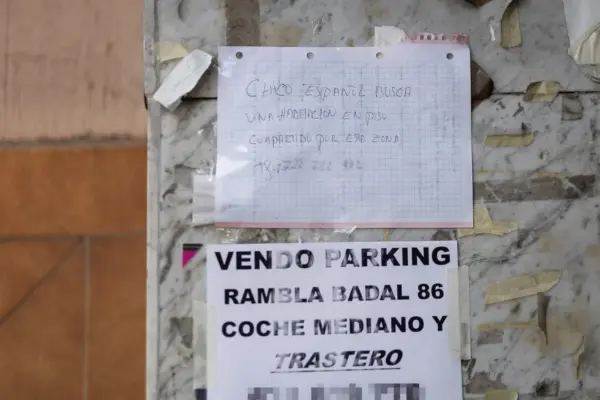 CHICO ESPAÑOL BUSCA
UNA HABITACION EN PISO
CUMPARTIDO POR ESA ZONA
VENDO PARKING
RAMBLA BADAL 86
COCHE MEDIANO Y
TRASTERO